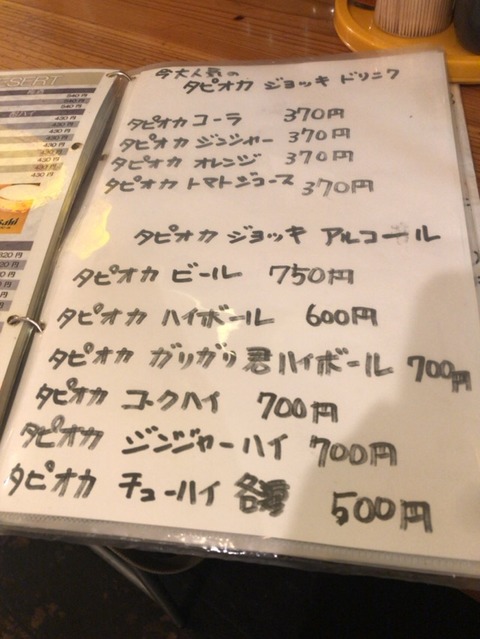 今大人気の
タピオカ ジョッキ ドリンク
タピオカ コーラ 370円
タピオカ ジンジャー 370円
タピオカ オレンジ 370円
タピオカ トマトジュース 370円
タピオカ ジョッキ アルコール
タピオカ ビール 750円
タピオカ ハイボール 600円
タピオカ ガリガリ君ハイボール 700円
タピオカ コークハイ 700円
タピオカ ジンジャーハイ 700円
タピオカ チューハイ 各種 500円
ESSERT
540円
540円
540円
430円
430円
430円
430円
430円